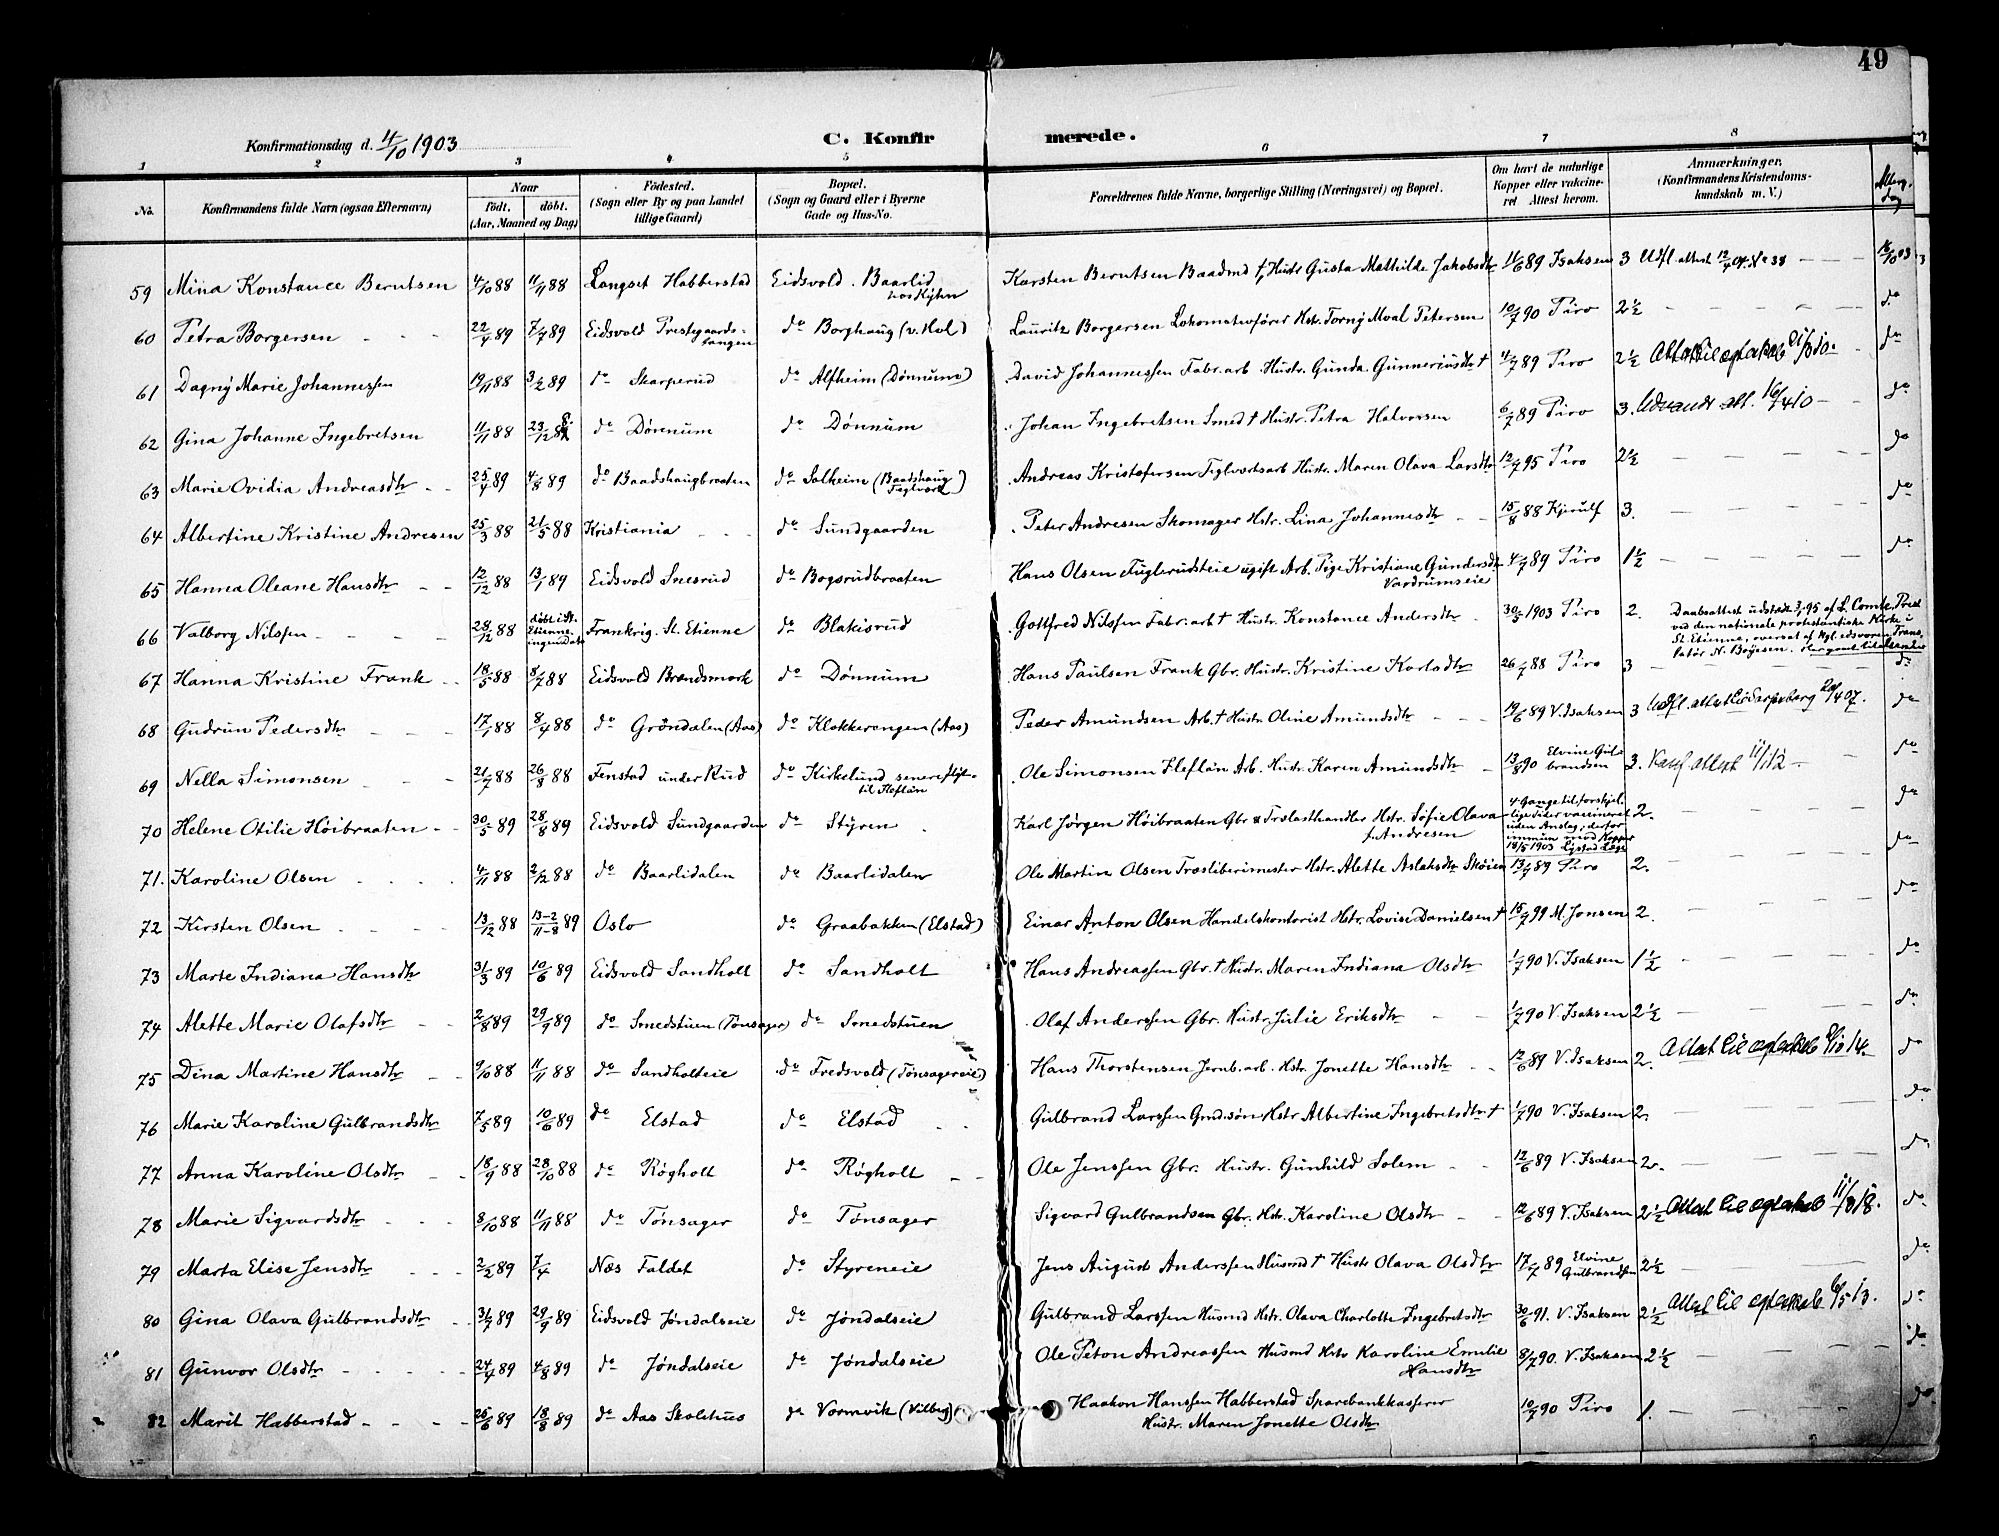 49
Konfirmationsdag d. 4/10 1903
C. Konfirmerede.
1 2 3 4 5 6 7 8
No. Konfirmandens fulde Navn (ogsaa Efternavn) Naar født. døbt. (Aar, Maaned og Dag) Fødested. (Sogn eller By og paa Landet tillige Gaard) Bopæl. (Sogn og Gaard eller i Byerne Gade og Hus-No. Forældrenes fulde Navne, borgerlige Stilling (Næringsvei) og Bopæl. Om havt de naturlige Kopper eller vakcineret Attest herom. Anmærkninger. (Konfirmandens Kristendomskundskab m. V.)
59 Mina Konstance Berntsen 4/10 88 11/11 88 Langset Habberstad Eidsvold. Baarlid hos Kyhn Karsten Berntsen Baadmd †, Hustr Gusta Mathilde Jakobsdtr 11/6 89 Isaksen 3 Udfl. attest 12/4 04 No 38 – – 18/10 03
60 Petra Borgersen 22/4 89 7/7 89 Eidsvold Prestegaardstangen do Borghaug (v. Hvl) Lauritz Borgersen Lokomotivfører Hstr. Torny Moal Petersen 10/7 90 Piro 2½ do
61 Dagny Marie Johannessen 19/11 88 3/2 89 do Skarperud do Alfheim (Dønnum) David Johannessen Fabr. arb. Hustr. Gunda Gunneriusdtr † 4/7 89 Piro 2½ Attest til ægteskab do
62 Gina Johanne Ingebretsen 11/11 88 23/12 88 do Dønnum do Dønnum Johan Ingebretsen Smed † Hustr. Petra Halvorsen 6/7 89 Piro 3. Udvandr. att. 16/4 10 do
63 Marie Ovidia Andreasdtr 25/4 89 4/8 89 do Baadshaugbraaten do Solheim (Baadshaug Teglværk) Andreas Kristofersen Teglværksarb Hustr. Maren Olava Larsdtr 12/7 95 Piro 2½ do
64 Albertine Kristine Andresen 25/3 88 21/5 88 Kristiania do Sundgaarden Peter Andresen Skomager Hstr. Lina Johannesdtr 15/8 88 Kjerulf 3. do
65 Hanna Oleane Hansdtr 12/12 88 13/1 89 Eidsvold Snesrud do Bogsrudbraaten Hans Olsen Fuglerudsteie ugift Arb. Pige Kristiane Gundersdtr Vardrumseie 4/7 89 Piro 1½ do
66 Valborg Nilssen 28/12 88 døbt i St. Etienne ingen dato Frankrig. St. Etienne do Blakisrud Gottfred Nilssen Fabr. arb † Hustr. Konstance Andersdtr 30/5 1903 Piro 2. Daabsattest udstedt 3/1 95 af L. Comte, Prest ved den nationale protestantiske Kirke i St Etienne, oversat af Kgl. edsvoren Translatør N. Boyesen.
67 Hanna Kristine Frank 18/5 88 8/7 88 Eidsvold Brandsmork do Dønnum Hans Paulsen Frank Gbr. Hustr. Kristine Karlsdtr 26/7 88 Piro 3 do
68 Gudrun Pedersdtr 17/1 88 8/4 88 do Grøndalen (Aas) do Klokkerengen (Aas) Peder Amundsen Arb. † Hustr Oline Amundsdtr 19/6 89 V. Isaksen 3 Udfl. attest til Sarpsborg 20/4 07. do
69 Nella Simonsen 21/7 88 26/8 88 Fenstad under Rud do Kirkelund senere flyttet til Fleflån Ole Simonsen Fleflån Arb. Hustr. Karen Amundsdtr 13/8 90 Elvine Gulbrandsen 3. Konf. attest 11/1 12 do
70 Helene Otilie Høibraaten 30/5 89 28/8 89 Eidsvold Sundgaarden do Styren Karl Jørgen Høibraaten Gbr & Trælasthandler Hstr. Sofie Olava f. Andresen 4 Gange til forskjellige Tider vaccineret uden Anslag, derfor immun mod Kopper 18/5 1903 Lystad Læge 2. do
71. Karoline Olsen 4/11 88 2/12 88 do Baarlidalen do Baarlidalen Ole Martin Olsen Træsliberimester Hstr. Alette Aslaksdtr Skøien 13/7 89 Piro 2. do
72 Kirsten Olsen 13/12 88 13-2/11-8 89 Oslo do Graabakken (Elstad) Einar Anton Olsen Handelskontorist Hstr. Lovise Danielsen † 15/7 99 M. Jonsen 2. do
73 Marte Indiana Hansdtr 31/3 89 10/6 89 Eidsvold Sandholt do Sandholt Hans Andreassen Gbr. † Hustr. Maren Indiana Olsdtr 1/7 90 V. Isaksen 1½ do
74 Alette Marie Olafsdtr 2/8 89 29/9 89 do Smedstuen (Tønsager) do Smedstuen Olaf Anderssen Gbr. Hustr. Julie Eriksdtr 1/7 90 V. Isaksen 2½ do
75 Dina Martine Hansdtr 9/10 88 11/11 88 do Sandholteie do Fredsvold (Tønsagereie) Hans Thorstensen Jernb. arb. Hstr. Jonette Hansdtr 12/6 89 V. Isaksen 2. Attest til ægteskab do
76 Marie Karoline Gulbrandsdtr 7/5 89 10/6 89 do Elstad do Elstad Gulbrand Larssen Grdsøn Hstr Albertine Ingebretsdtr † 1/7 90 V. Isaksen 2. do
77 Anna Karoline Olsdtr 18/9 88 28/10 88 do Røgholt do Røgholt Ole Jenssen Gbr. Hustr. Gunhild Solem 12/6 89 V. Isaksen 2. do
78 Marie Sigvardsdtr 8/10 88 11/11 88 do Tønsager do Tønsager Sigvard Gulbrandsen Gbr. Hstr. Karoline Olsdtr 12/6 89 V. Isaksen 2½ Attest til ægteskab 11/8 18. do
79 Marta Elise Jensdtr 2/2 89 7/4 Næs Faldet do Styreneie Jens August Anderssen Husmd † Hustr Olava Olsdtr 17/7 89 Elvine Gulbrandsen 2½ do
80 Gina Olava Gulbrandsdtr 31/7 89 29/9 89 Eidsvold Jøndalseie do Jøndalseie Gulbrand Larssen Husmd Hstr. Olava Charlotte Ingebretsdtr 30/6 91. V. Isaksen 2½ Attest til ægteskab 6/5 13. do
81 Gunvor Olsdtr 24/4 89 4/8 89 do Jøndalseie do Jøndalseie Ole Peton Andreassen Husmd Hstr Karoline Emilie Hansdtr 8/7 90. V. Isaksen 2½ do
82 Marit Habberstad 26/6 89 18/8 89 do Aas Skolehus do Vormvik (Vilberg) Haakon Hanssen Habberstad Sparebankkasserer Hustr. Maren Jonette Olsdtr 10/7 90 Piro 1. do